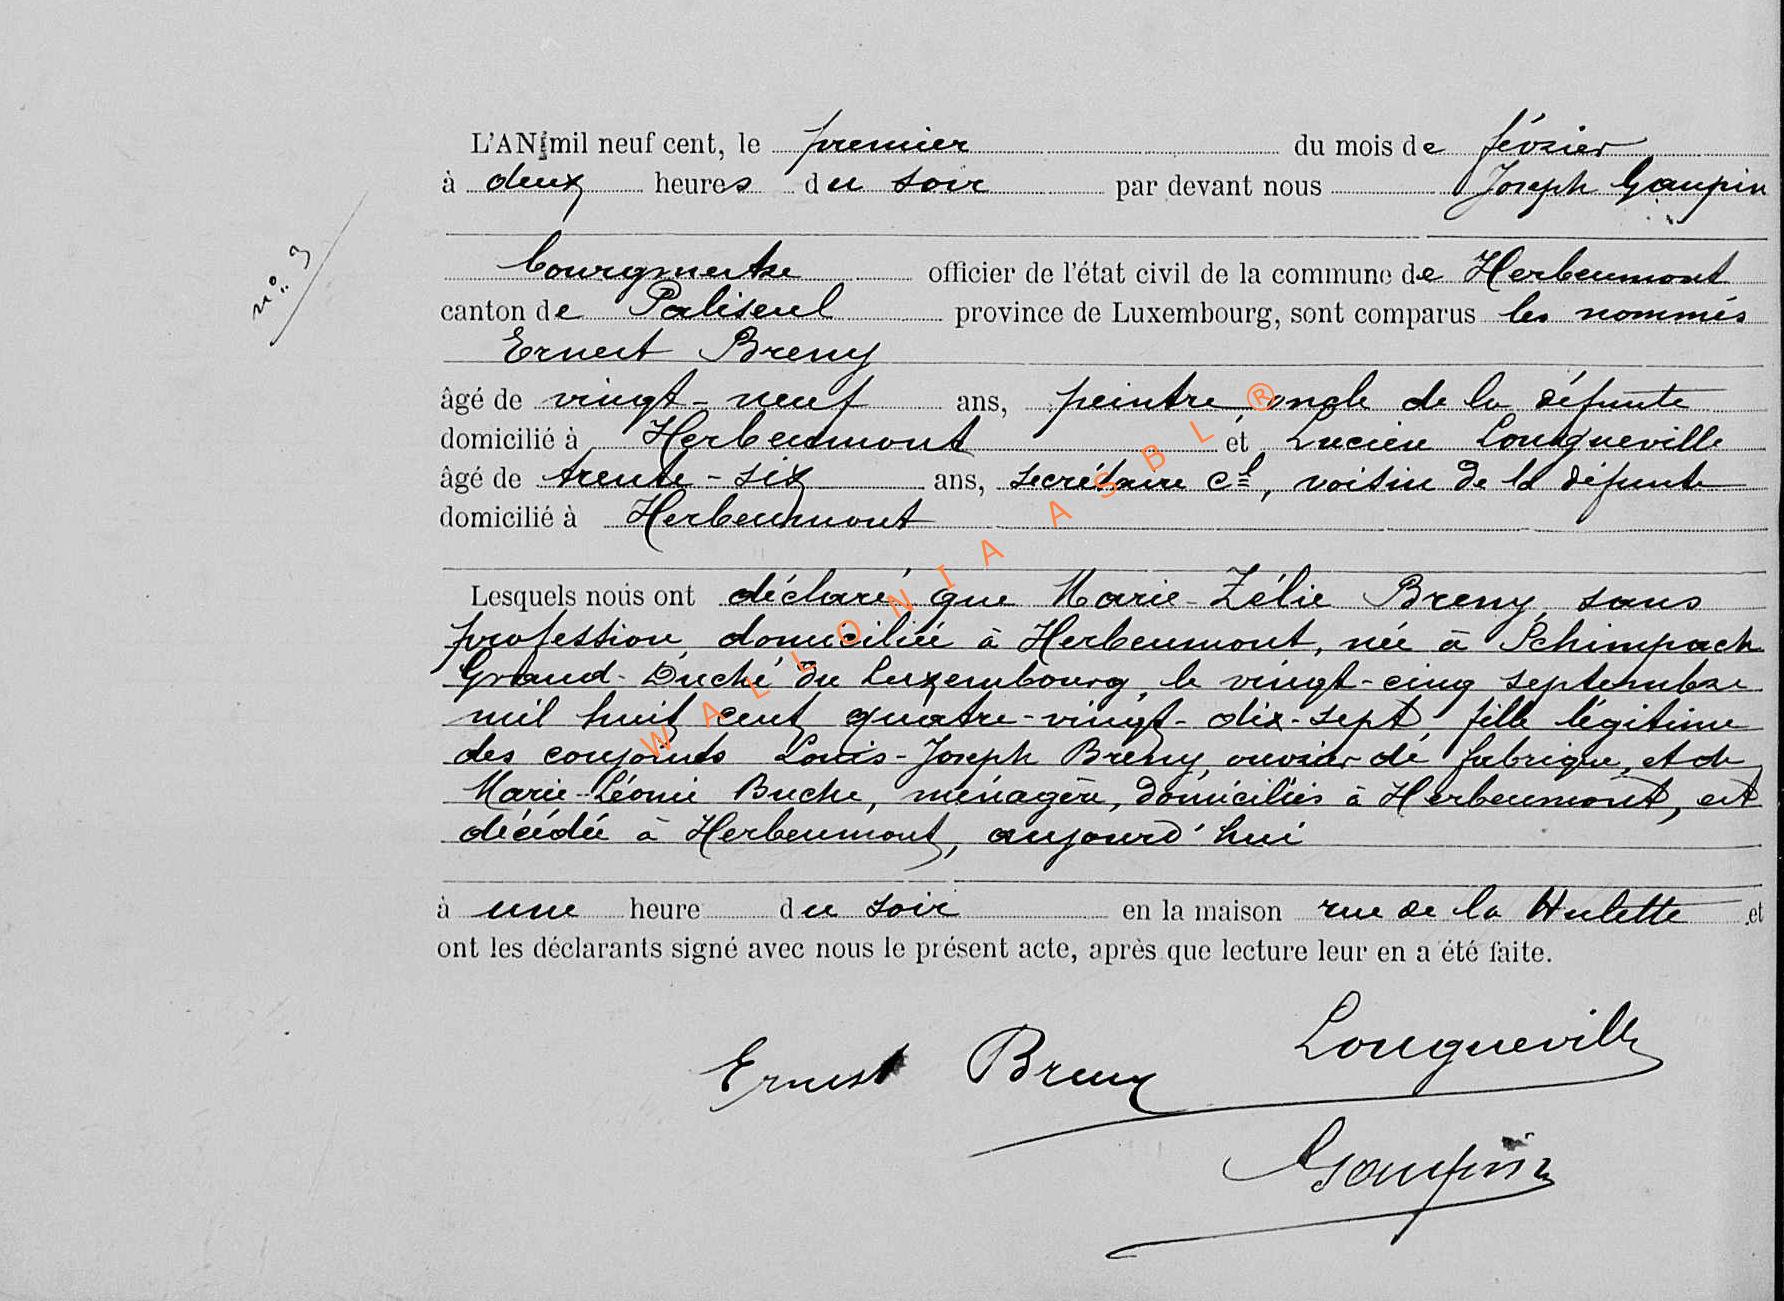 L'AN mil neuf cent, le premier du mois de février
à deux heures du soir par devant nous Joseph Gaupin
n° 3
bourgmestre officier de l'état civil de la commune de Herbeumont
canton de Paliseul province de Luxembourg, sont comparus les nommés
Ernest Breny
âgé de vingt-neuf ans, peintre, oncle de la défunte
domicilié à Herbeumont et Lucien Longueville
âgé de trente-six ans, secrétaire cl, voisin de la défunte
domicilié à Herbeumont
Lesquels nous ont déclaré que Marie-Zélie Breny, sans
profession, domiciliée à Herbeumont, née à Schimpach
Grand-Duché du Luxembourg, le vingt-cinq septembre
mil huit cent quatre-vingt-dix-sept, fille légitime
des conjoints Louis-Joseph Breny, ouvrier de fabrique, et de
Marie-Léonie Buche, ménagère, domiciliés à Herbeumont, est
décédée à Herbeumont, aujourd'hui
à une heure du soir en la maison rue de la Hulette et
ont les déclarants signé avec nous le présent acte, après que lecture leur en a été faite.
Ernest Breny Longueville
Gaupin
WALLONIA ASBL ®